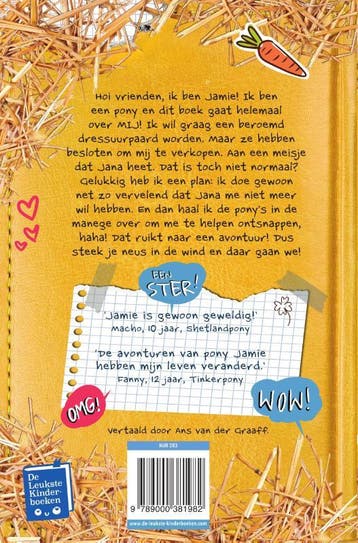 Hoi vrienden, ik ben Jamie! Ik ben
een pony en dit boek gaat helemaal
over MIJ! Ik wil graag een beroemd
dressuurpaard worden. Maar ze hebben
besloten om mij te verkopen. Aan een meisje
dat Jana heet. Dat is toch niet normaal?
Gelukkig heb ik een plan: ik doe gewoon
net zo vervelend dat Jana me niet meer
wil hebben. En dan haal ik de pony's in de
manege over om me te helpen ontsnappen,
haha! Dat ruikt naar een avontuur! Dus
steek je neus in de wind en daar gaan we!
EEN
STER!
'Jamie is gewoon geweldig!'
Macho, 10 jaar, Shetlandpony
'De avonturen van pony Jamie
hebben mijn leven veranderd.'
Fanny, 12 jaar, Tinkerpony
OMG!
WOW!
Vertaald door Ans van der Graaff
NUR 282
De
Leukste
Kinder-
boeken
9 789000 381982
www.de-leukste-kinderboeken.com